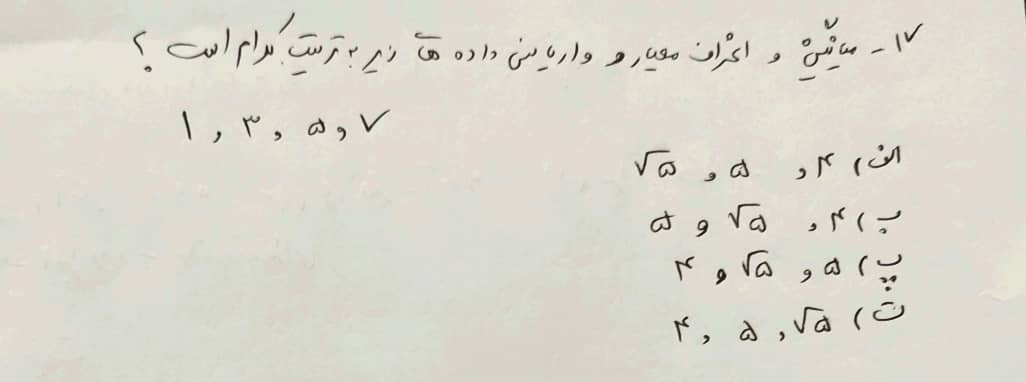 ۱۷- میانگین و انحراف معیار و واریانس داده های زیر به ترتیب کدام است ؟
۱ , ۳ , ۵ , ۷
الف) ۴ , ۵ , √۵
ب) ۴ , √۵ و ۵
پ) ۵ و √۵ و ۴
ت) √۵ , ۵ , ۴